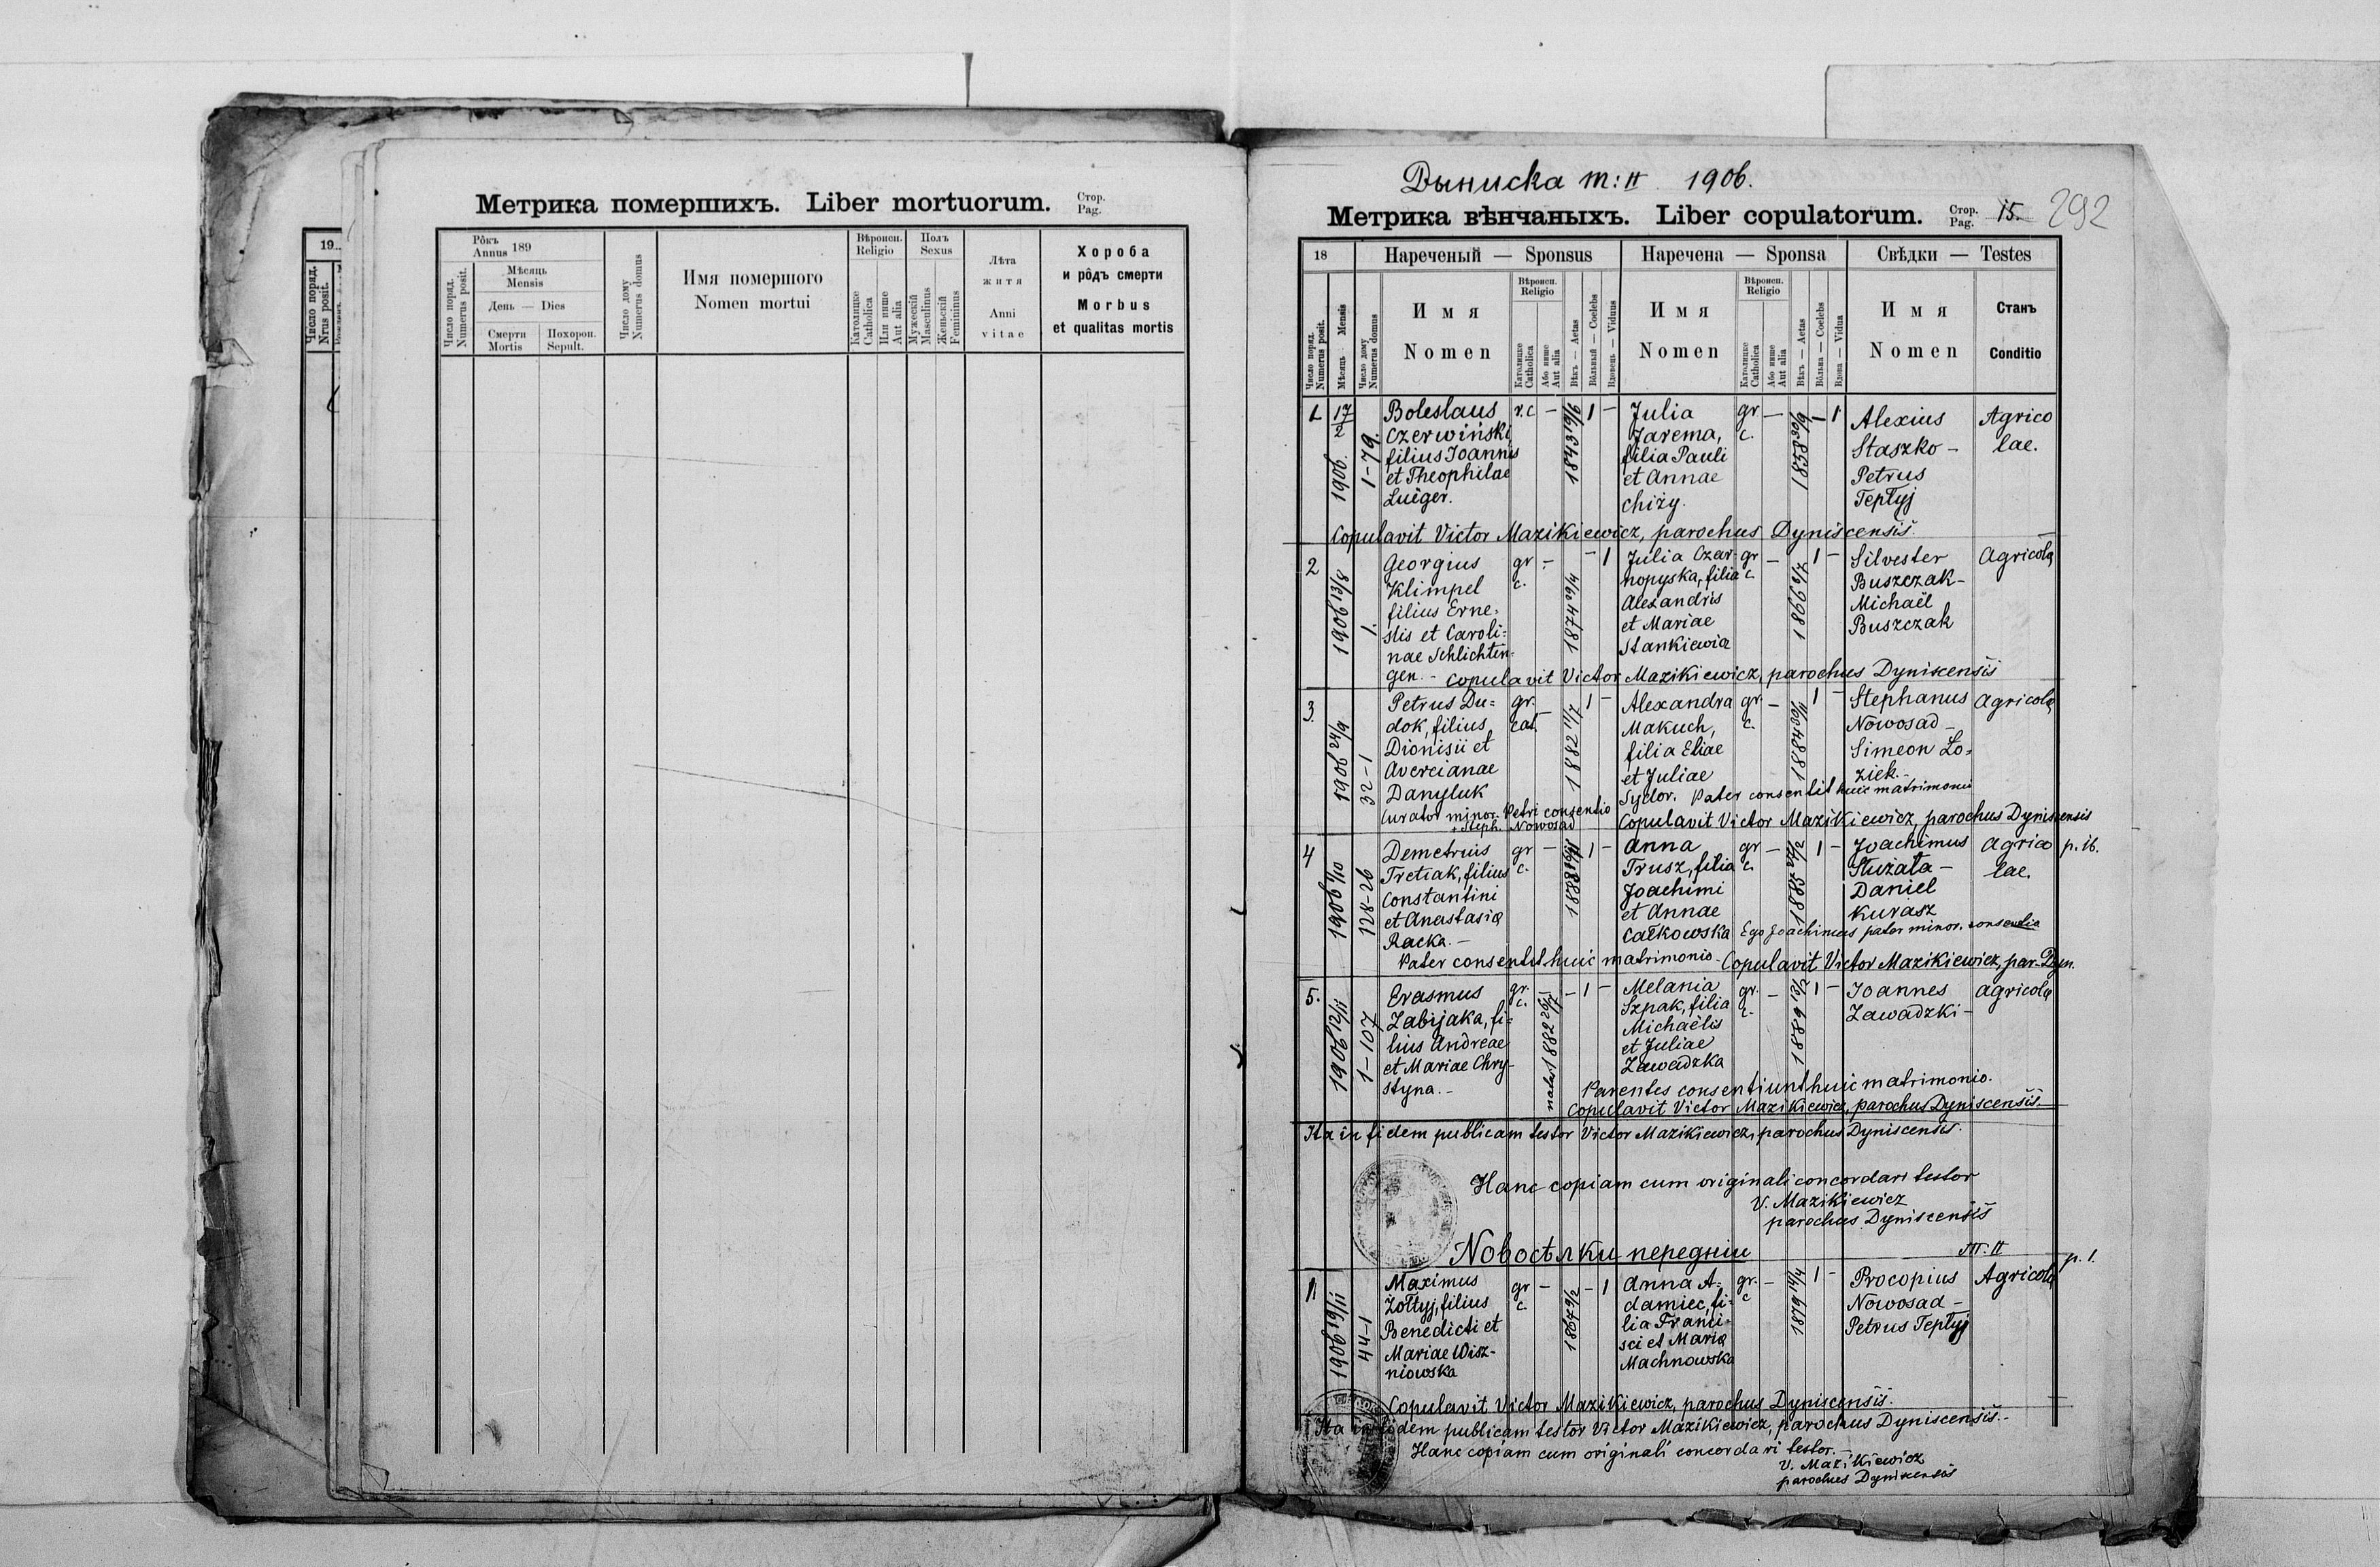 Метрика померших. Liber mortuorum. Стор. Pag.
19..
Число поряд. Nrus posit.
Рôкъ Annus 189
Число поряд. Numerus posit.
Мѣсяць Mensis
День — Dies
Смерти Mortis
Похорон. Sepult.
Число дому Numerus domus
Имя помершого
Nomen mortui
Вѣроисп. Religio
Католицке Catholica
Или инше Aut alia
Полъ Sexus
Мужескій Masculinus
Женьскій Femininus
Лѣта житя
Anni vitae
Хороба
и рôдъ смерти
Morbus
et qualitas mortis
Дыниска т: II 1906.
Метрика вѣнчаныхъ. Liber copulatorum. Стор. Pag. 15. 292
18
Нареченый — Sponsus
Наречена — Sponsa
Свѣдки — Testes
Число поряд. Numerus posit.
Мѣсяць Mensis
Число дому Numerus domus
Имя
Nomen
Вѣроисп. Religio
Католицке Catholica
Або инше Aut alia
Вѣкъ — Aetas
Вôльный — Coelebs
Вдовець — Viduus
Имя
Nomen
Вѣроисп. Religio
Католицке Catholica
Або инше Aut alia
Вѣкъ — Aetas
Вôльна — Coelebs
Вдова — Vidua
Имя
Nomen
Станъ
Conditio
1 17/2 1906. 1-79.
Boleslaus
Czerwiński
filius Joannis
et Theophilae
Luëger.
r.c — 1843 19/6 1 —
Julia
Jarema,
filia Pauli
et Annae
Chiży.
gr. c. — 1838 30/9 1 1
Alexius
Staszko -
Petrus
Tepłyj
Agrico
lae.
Copulavit Victor Mazikiewicz, parochus Dyniscensis.
2 1906 13/8 1.
Georgius
Klimpel
filius Erne-
stis et Caroli=
nae Schlichten=
gen. -
gr c. — 1874 29/4 — 1
Julia Czar-
nopyska, filia
Alexandris
et Mariae
Stankiewicz
gr c. — 1866 6/7 1 —
Silvester
Buszczak -
Michaël
Buszczak
Agricola
copulavit Victor Mazikiewicz, parochus Dyniscensis
3. 1906 24/9 32-1
Petrus Du=
dok, filius
Dionisii et
Avercianae
Danyluk
gr. cat. — 1882 11/7 1 —
Alexandra
Makuch,
filia Eliae
et Juliae
Sydor.
gr c. — 1 —
Stephanus
Nowosad -
Simeon Ło=
ziek. -
Agricola
Pater consentit huic matrimonio
Curator minor. Petri consentio
+ Steph. Nowosad
Copulavit Victor Mazikiewicz, parochus Dyniscensis
4 1906 1/10 128-26
Demetrius
Tretiak, filius
Constantini
et Anastasia
Racka. -
gr c. — 1 —
Anna
Trusz, filia
Joachimi
et Annae
Całkowska
gr c. — 1 —
Joachimus
Służała -
Daniel
Kurasz
Agrico
lae.
p. 16.
Ego Joachimus pater minor. consentio
Pater consentit huic matrimonio -
Copulavit Victor Mazikiewicz, par. Dyn.
5. 1906 12/11 1-107
Erasmus
Zabijaka, fi=
lius Andreae
et Mariae Chry-
styna. -
gr. c. natus 1882 — 1 —
Melania
Szpak, filia
Michaëlis
et Juliae
Zawadzka
gr. c. — 1889 13/1 1 —
Joannes
Zawadzki -
agricola
Parentes consentiunt huic matrimonio.
Copulavit Victor Mazikiewicz, parochus Dyniscensis.
Ita in fidem publicam testor Victor Mazikiewicz, parochus Dyniscensis.
Hanc copiam cum originali concordari testor
V. Mazikiewicz
parochus Dyniscensis
Новосѣлки передніи т. II
p. 1.
1 1906 19/11 44-1
Maximus
Żołtyj, filius
Benedicti et
Mariae Wisz-
niowska
gr c — 1867 9/2 — 1
Anna A-
damiec, fi=
lia Franci-
sci et Maria
Machnowska
gr. c — 1879 14/4 1 —
Procopius
Nowosad -
Petrus Tepłyj
Agricola
Copulavit Victor Mazikiewicz, parochus Dyniscensis.
Ita in fidem publicam testor Victor Mazikiewicz, parochus Dyniscensis. -
Hanc copiam cum originali concordari testor. -
V. Mazikiewicz
parochus Dyniscensis